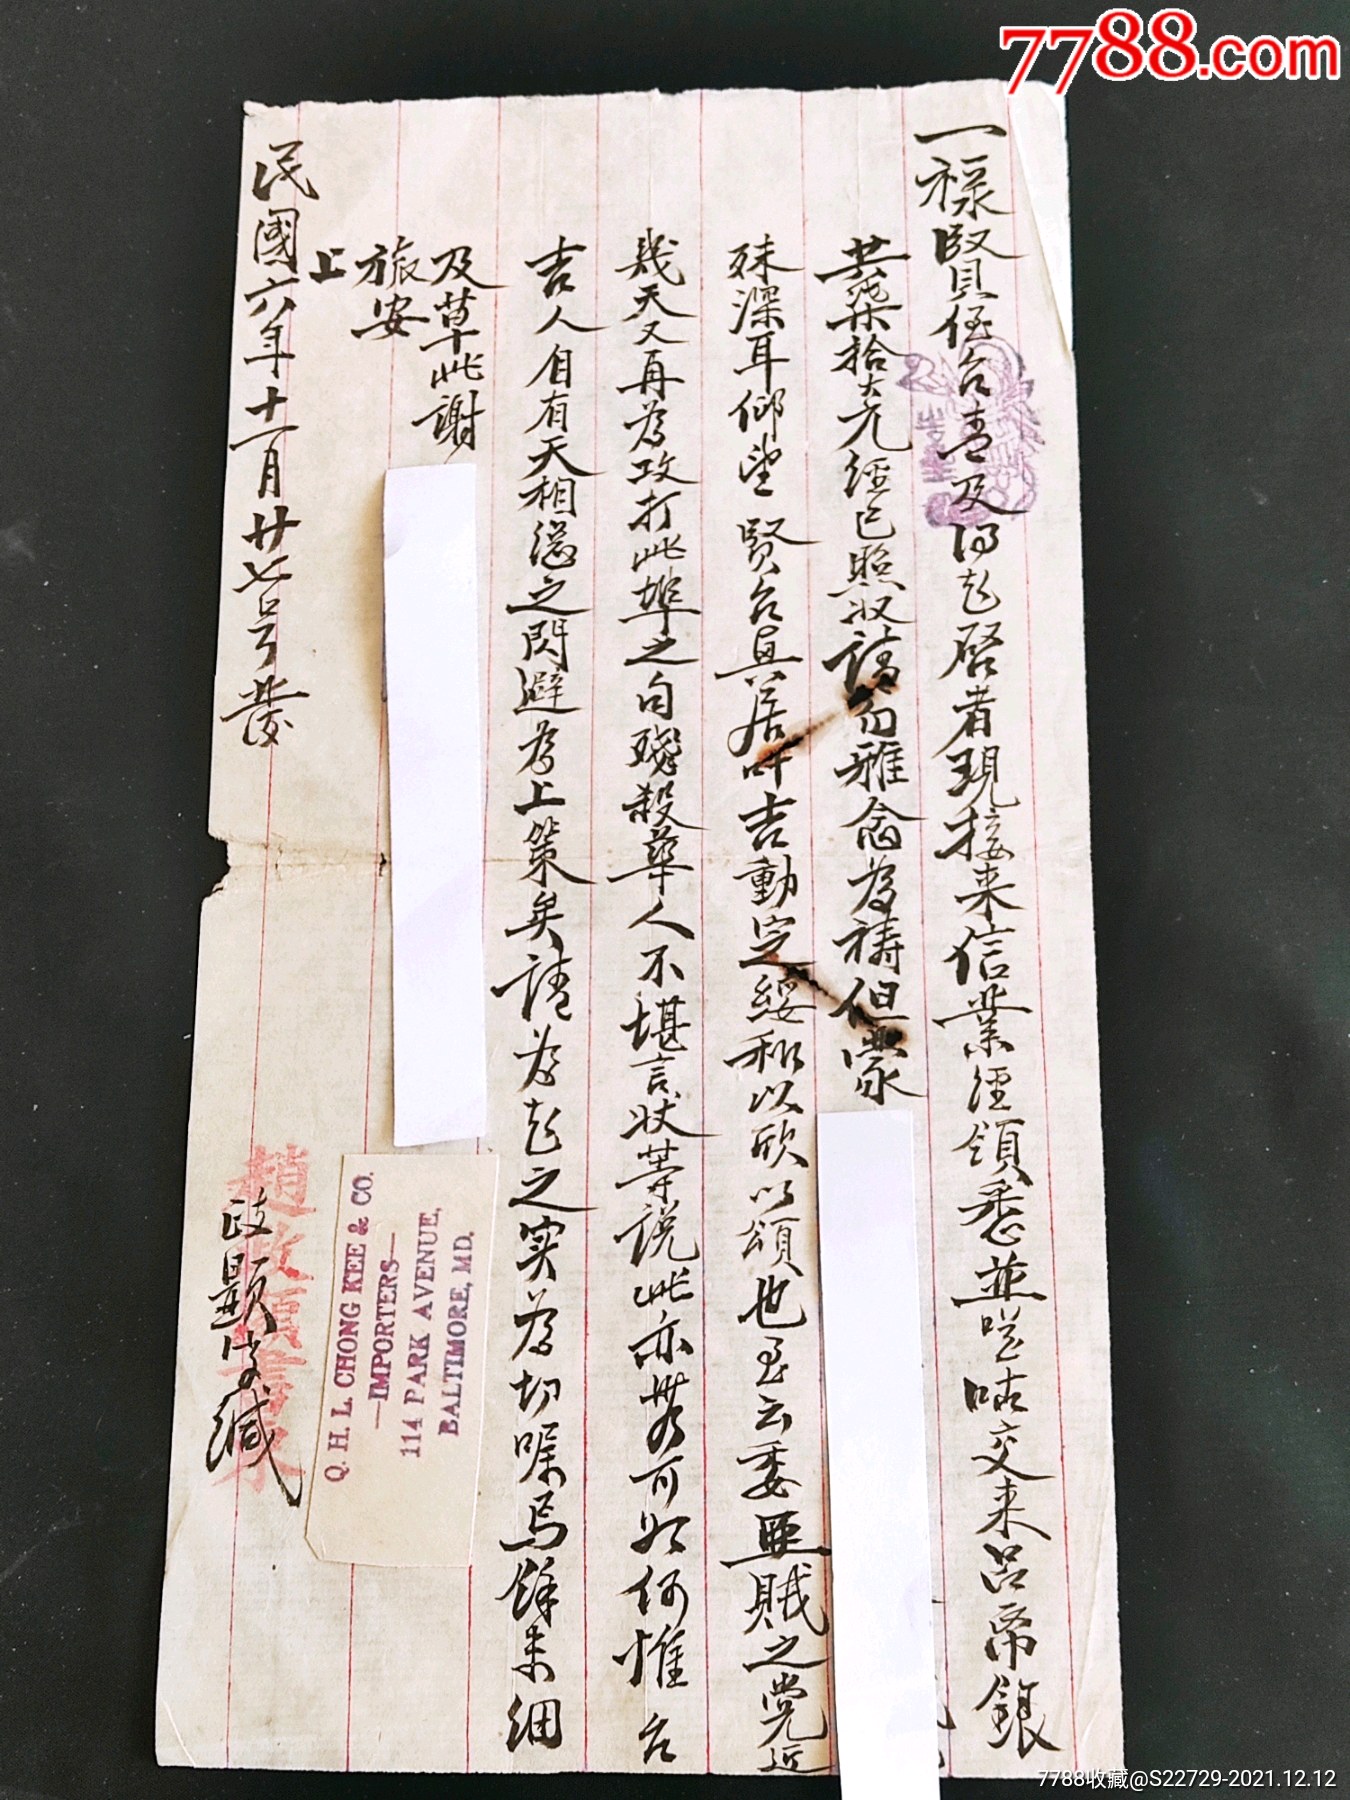 7788.com
一祿賢侄台青及 啓者現接来信業經領悉並 咭交来呂帝銀
共柒拾大元經已照收請勿雅念為禱但蒙
殊深耳仰望 賢台具居叶吉動定綏和以欣以頌也至云委匪賊之党近
幾天又再為攻打此埠之句殘殺華人不堪言狀等说此亦無可如何惟台
吉人自有天相總之閃避為上策矣請為 之实為切嘱焉餘未细
及草此謝
旅安
上
民國六年十一月廿七号發
政顯 缄
趙政顯書柬
Q. H. L. CHONG KEE & CO.
—IMPORTERS—
114 PARK AVENUE,
BALTIMORE, MD.
7788收藏@S22729-2021.12.12